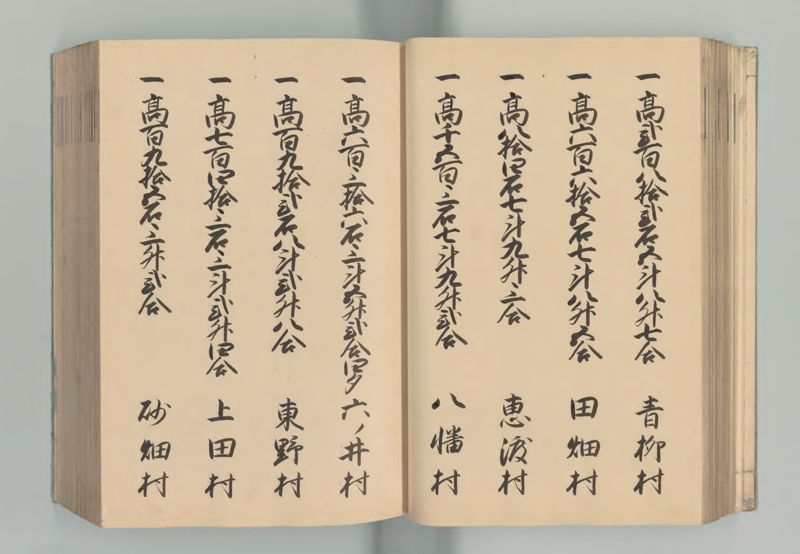 一 高弐百八拾弐石五斗八升七合 青柳村
一 高六百六拾五石七斗八升五合 田畑村
一 高八拾四石七斗九升三合 恵渡村
一 高千五百三石七斗九升弐合 八幡村
一 高六百三拾六石三斗五升弐合四夕 六ノ井村
一 高百九拾弐石八斗弐升八合 東野村
一 高七百四拾三石二斗弐升四合 上田村
一 高百九拾五石三升弐合 砂畑村